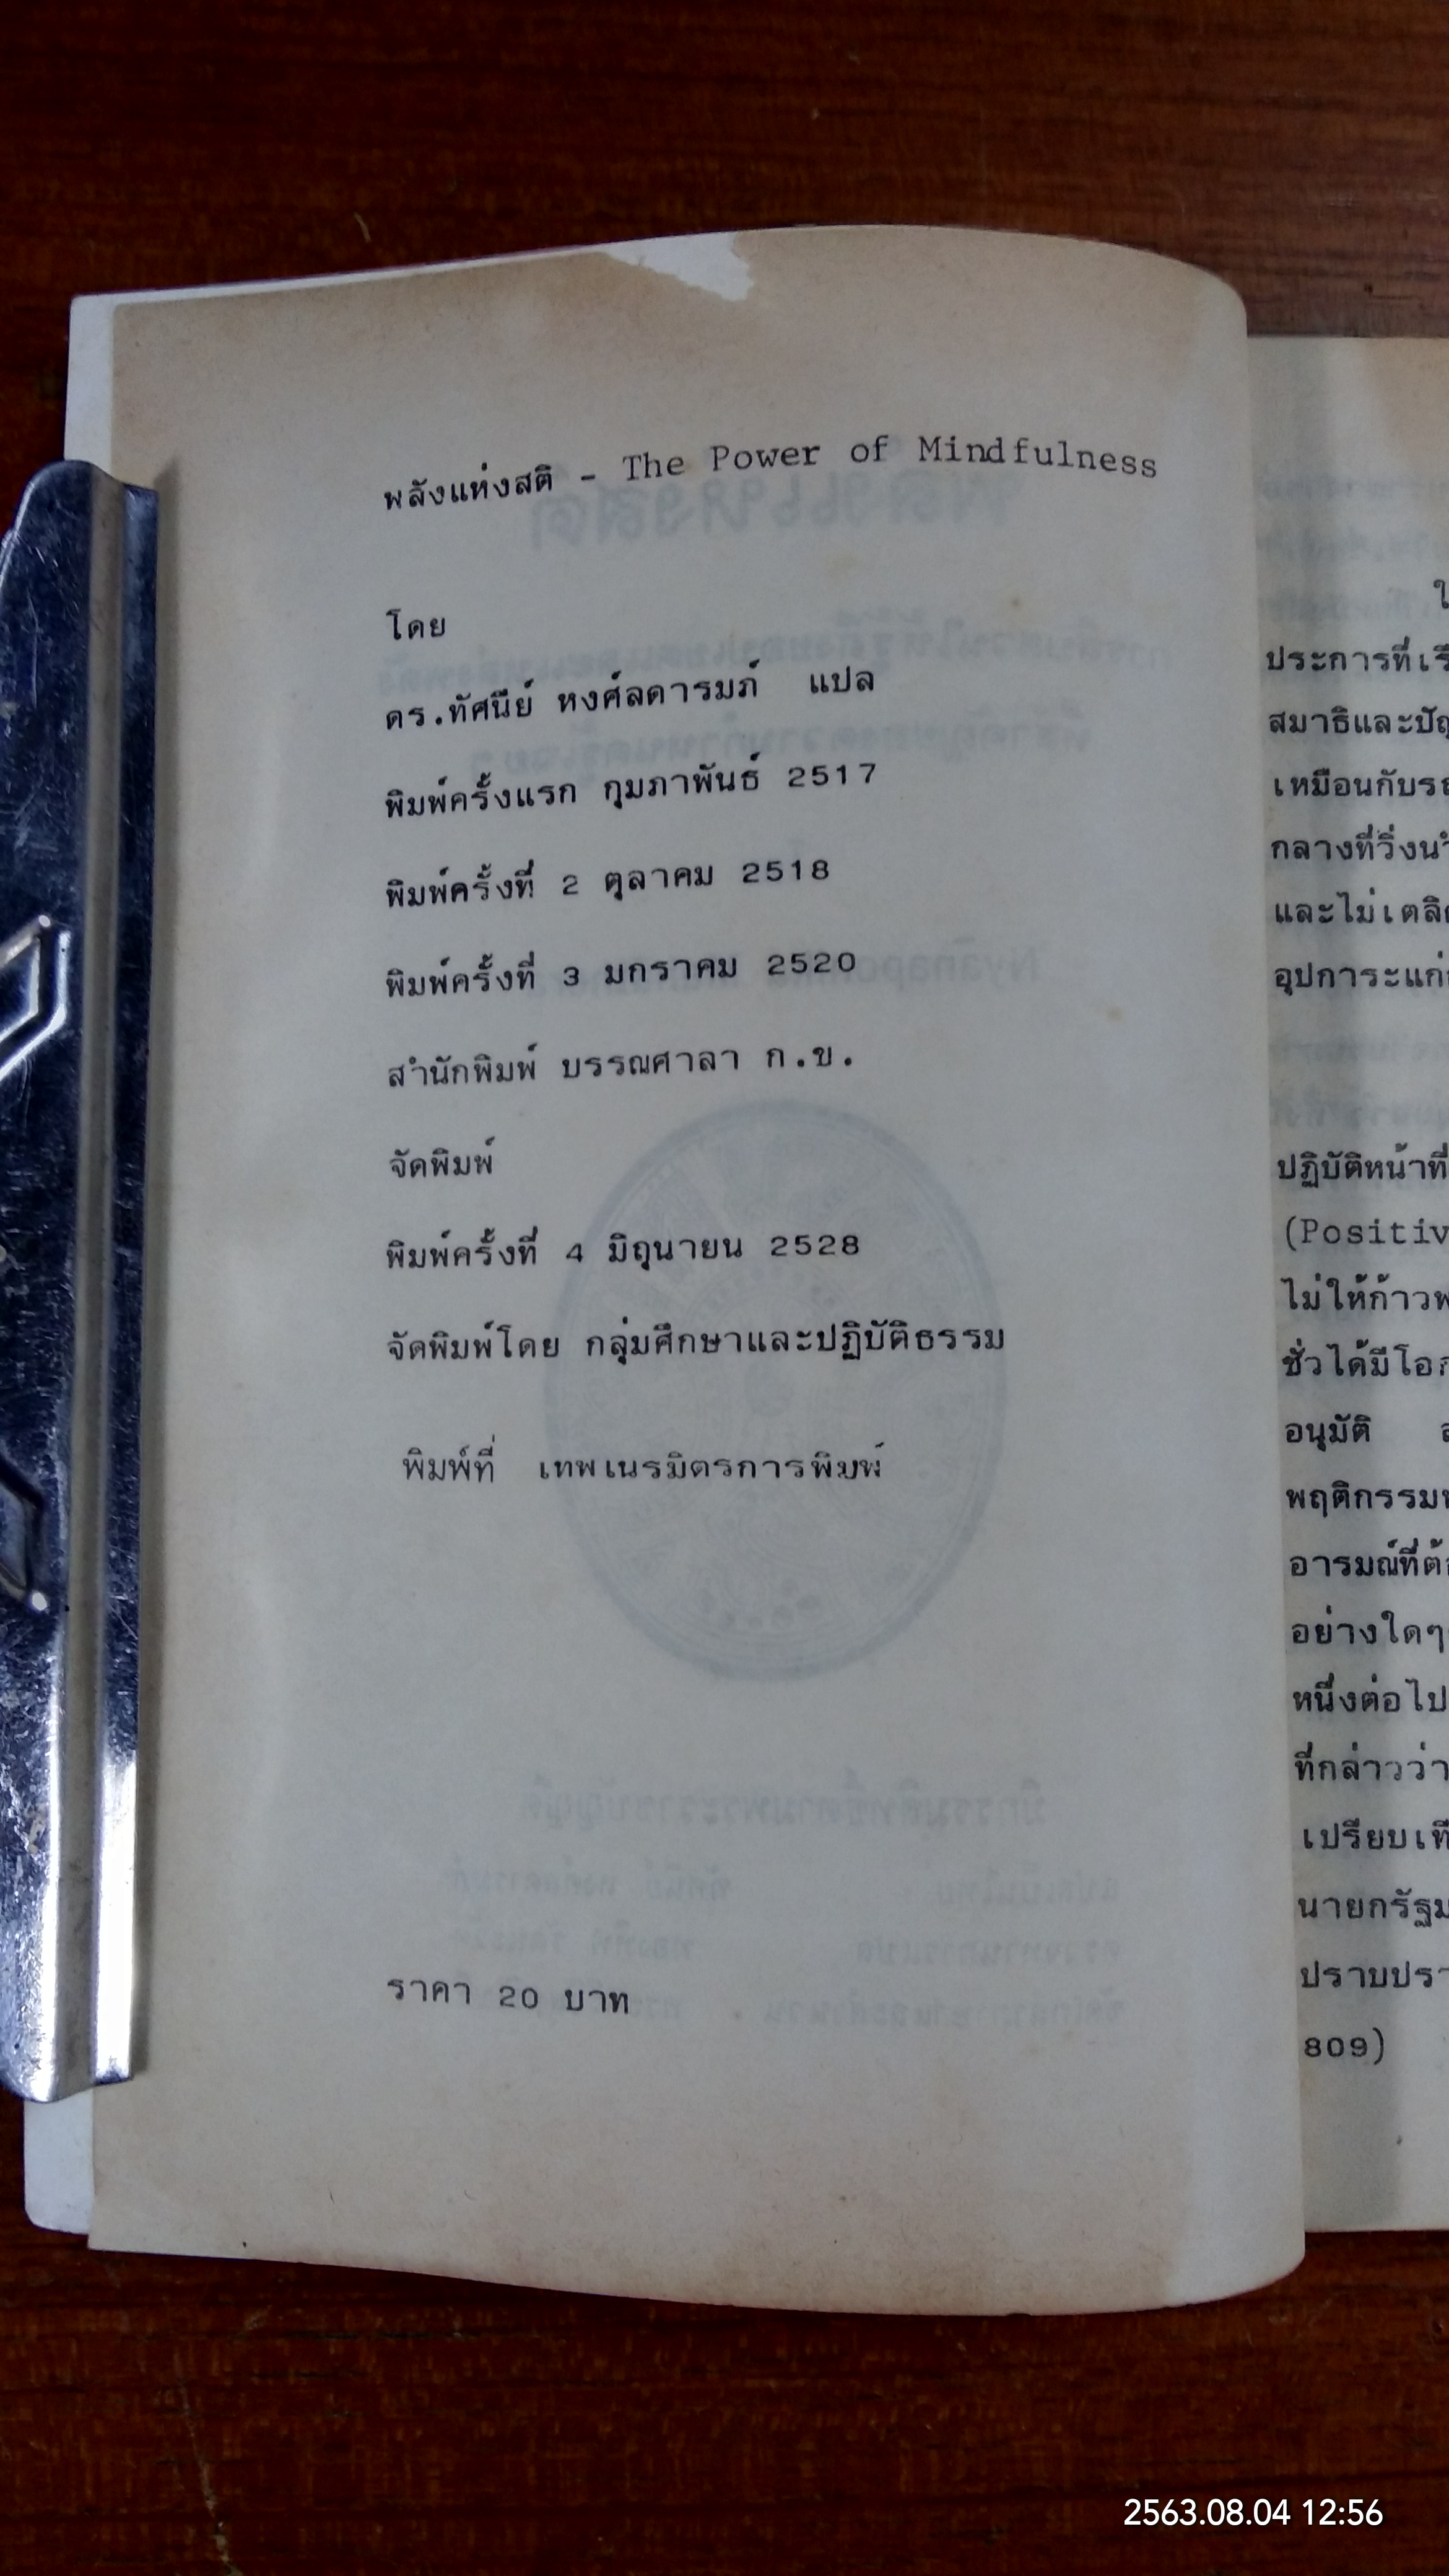 พลังแห่งสติ - The Power of Mindfulness
โดย
ดร.ทัศนีย์ หงศ์ลดารมภ์ แปล
พิมพ์ครั้งแรก กุมภาพันธ์ 2517
พิมพ์ครั้งที่ 2 ตุลาคม 2518
พิมพ์ครั้งที่ 3 มกราคม 2520
สำนักพิมพ์ บรรณศาลา ก.ข.
จัดพิมพ์
พิมพ์ครั้งที่ 4 มิถุนายน 2528
จัดพิมพ์โดย กลุ่มศึกษาและปฏิบัติธรรม
พิมพ์ที่ เทพเนรมิตรการพิมพ์
ราคา 20 บาท
ประการที่เรี
สมาธิและปัญ
เหมือนกับรถ
กลางที่วิ่งนำ
และไม่เตลิด
อุปการะแก่
ปฏิบัติหน้าที่
(Positiv
ไม่ให้ก้าวพ
ชั่วได้มีโอก
อนุมัติ
พฤติกรรมท
อารมณ์ที่ต้อ
อย่างใดๆ
หนึ่งต่อไป
ที่กล่าวว่า
เปรียบเที
นายกรัฐม
ปราบปรา
809)
2563.08.04 12:56